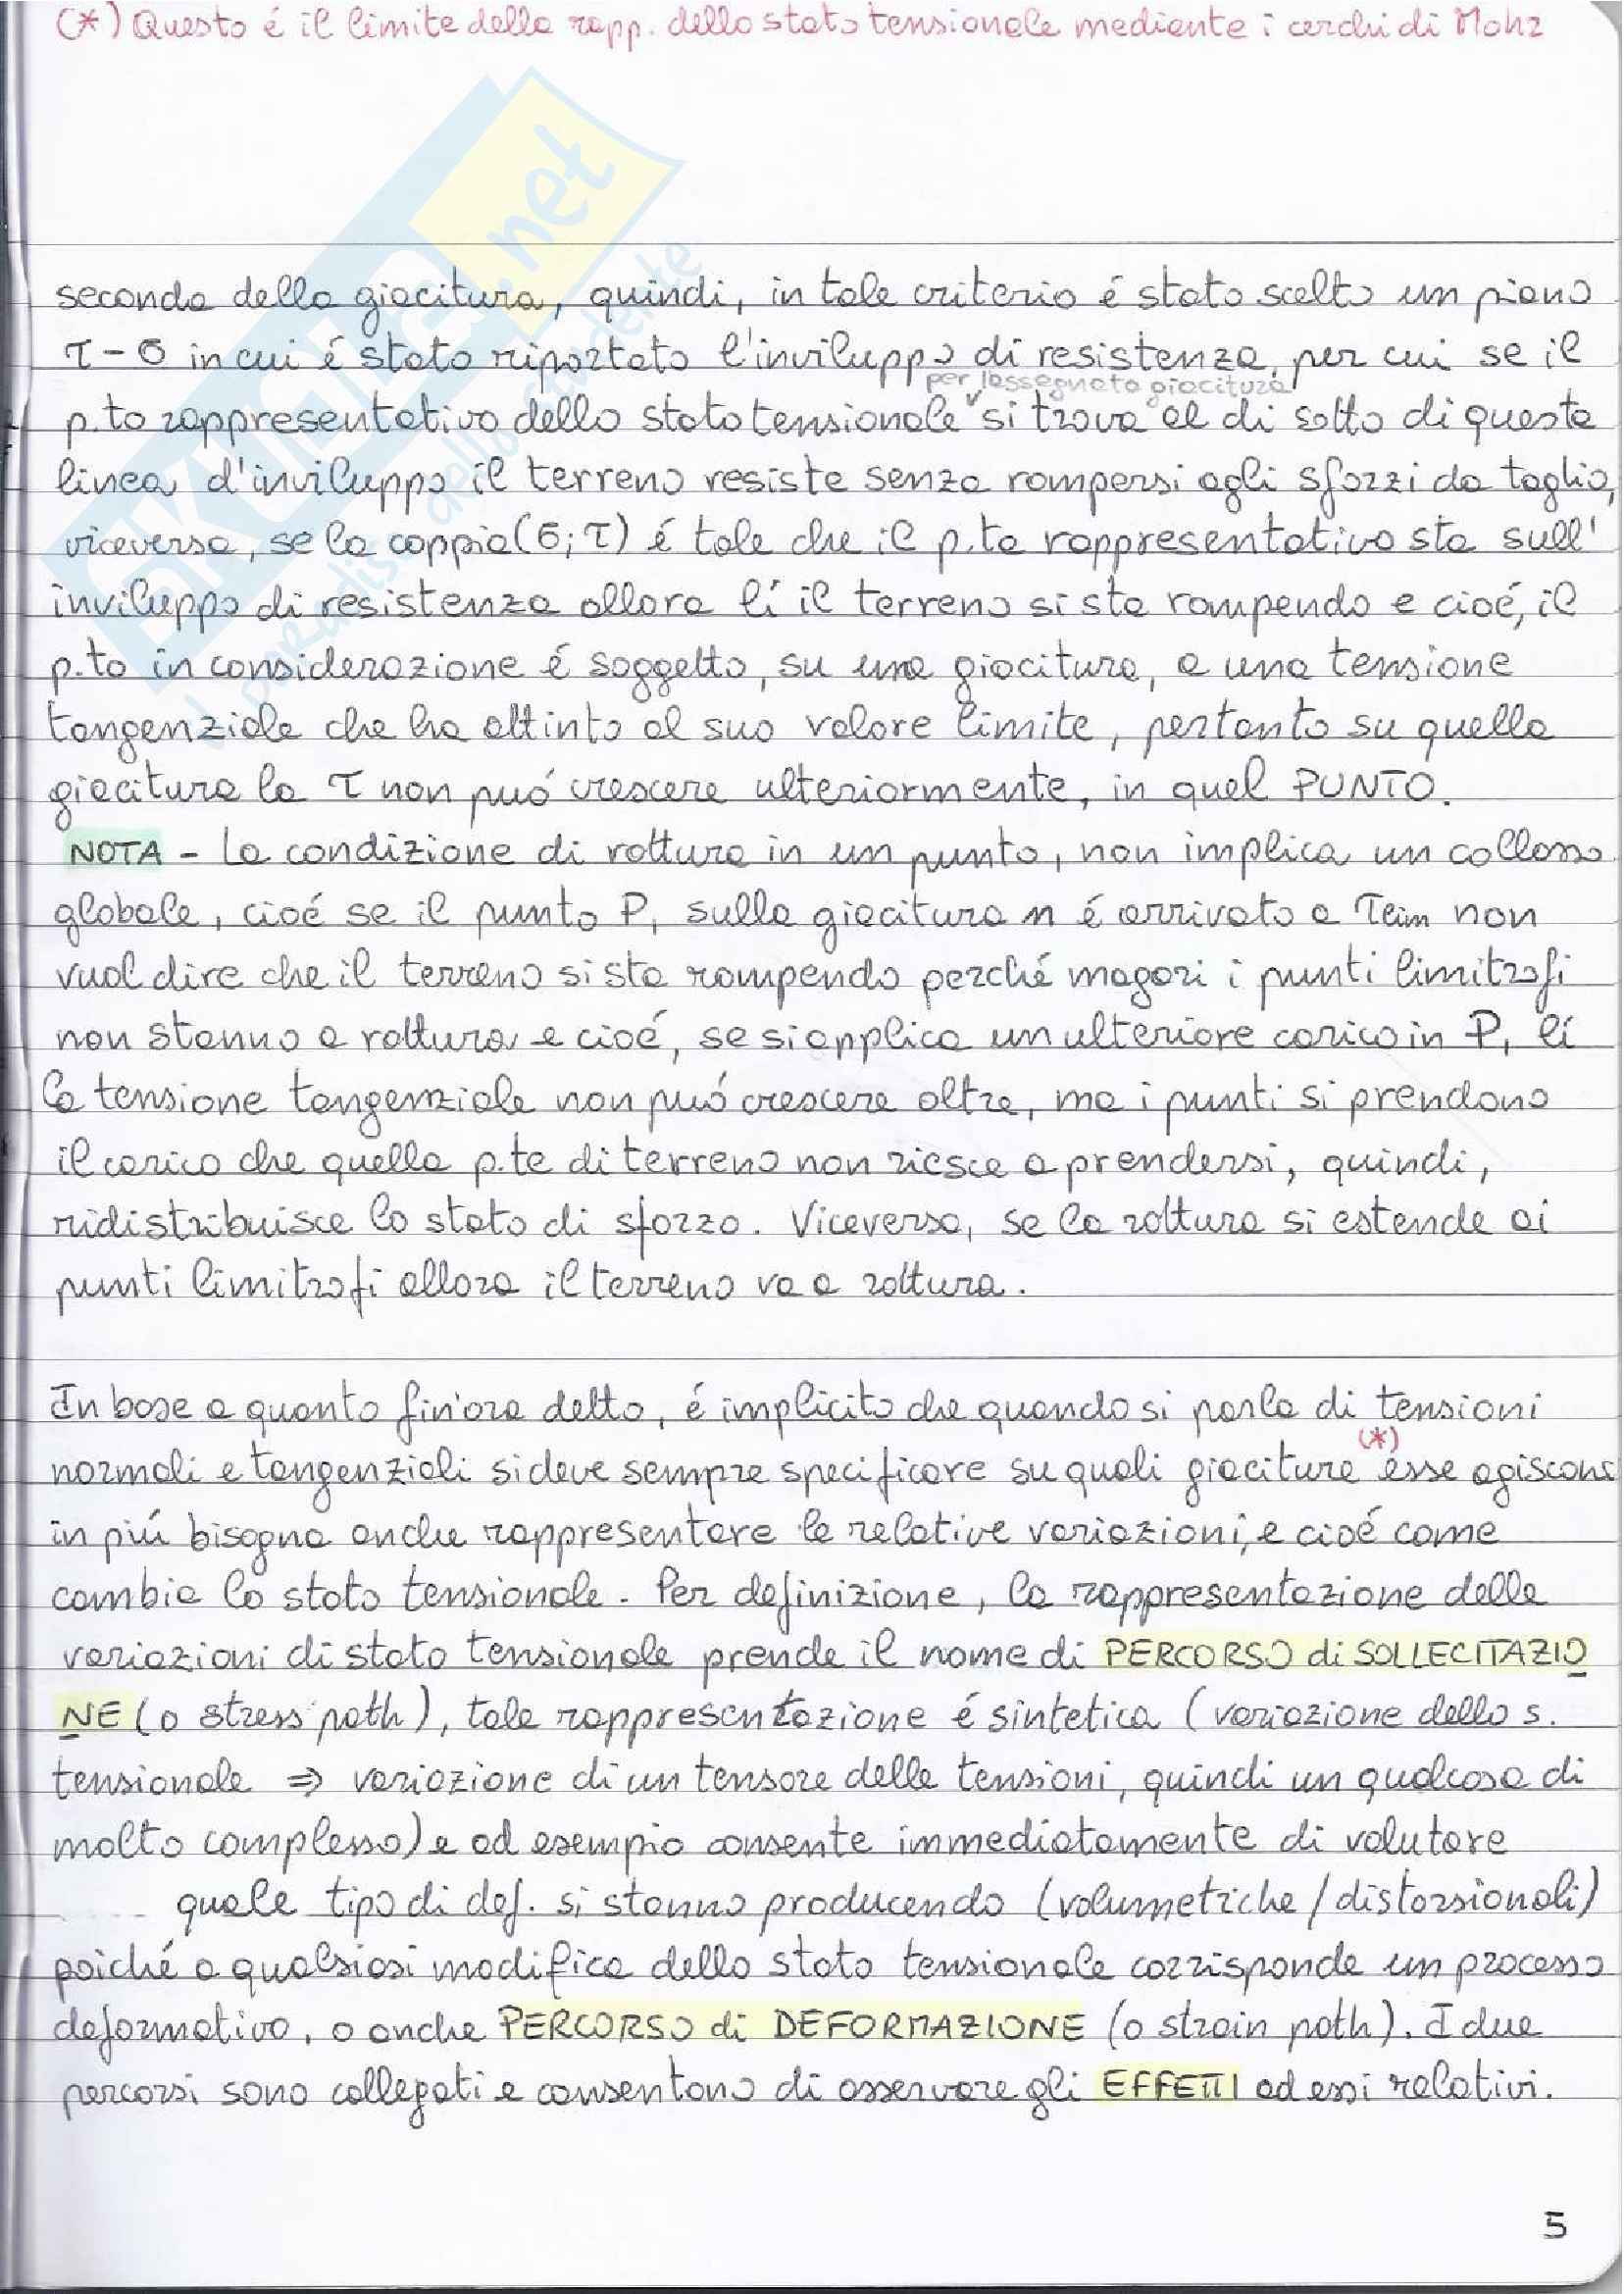 (*) Questo é il limite della rapp. dello stato tensionale mediante i cerchi di Mohr
SKUOLA.net
il paradiso dello studente
seconda della giacitura, quindi, in tale criterio é stato scelto un piano
τ-σ in cui é stato riportato l'inviluppo di resistenza, per cui se il
per l'assegnata giacitura
p.to rappresentativo dello stato tensionale si trova al di sotto di questa
linea d'inviluppo il terreno resiste senza rompersi agli sforzi da taglio,
viceversa, se la coppia (σ; τ) é tale che il p.to rappresentativo sta sull'
inviluppo di resistenza allora lí il terreno si sta rompendo e cioé, il
p.to in considerazione é soggetto, su una giacitura, a una tensione
tangenziale che ha attinto al suo valore limite, pertanto su quella
giacitura la τ non puó crescere ulteriormente, in quel PUNTO.
NOTA - La condizione di rottura in un punto, non implica un collasso
globale, cioé se il punto P, sulla giacitura n é arrivato a τlim non
vuol dire che il terreno si sta rompendo perché magari i punti limitrofi
non stanno a rottura e cioé, se si applica un ulteriore carico in P, lí
la tensione tangenziale non puó crescere oltre, ma i punti si prendono
il carico che quella p.te di terreno non riesce a prendersi, quindi,
ridistribuisce lo stato di sforzo. Viceversa, se la rottura si estende ai
punti limitrofi allora il terreno va a rottura.
In base a quanto fin'ora detto, é implicito che quando si parla di tensioni
normali e tangenziali si deve sempre specificare su quali giaciture (*) esse agiscono
in piú bisogna anche rappresentare le relative variazioni, e cioé come
cambia lo stato tensionale. Per definizione, la rappresentazione delle
variazioni di stato tensionale prende il nome di PERCORSO di SOLLECITAZIO
NE (o stress path), tale rappresentazione é sintetica (variazione dello s.
tensionale ⇒ variazione di un tensore delle tensioni, quindi un qualcosa di
molto complesso) e ad esempio consente immediatamente di valutare
quale tipo di def. si stanno producendo (volumetriche/distorsionali)
poiché a qualsiasi modifica dello stato tensionale corrisponde un processo
deformativo, o anche PERCORSO di DEFORMAZIONE (o strain path). I due
percorsi sono collegati e consentono di osservare gli EFFETTI ad essi relativi.
5